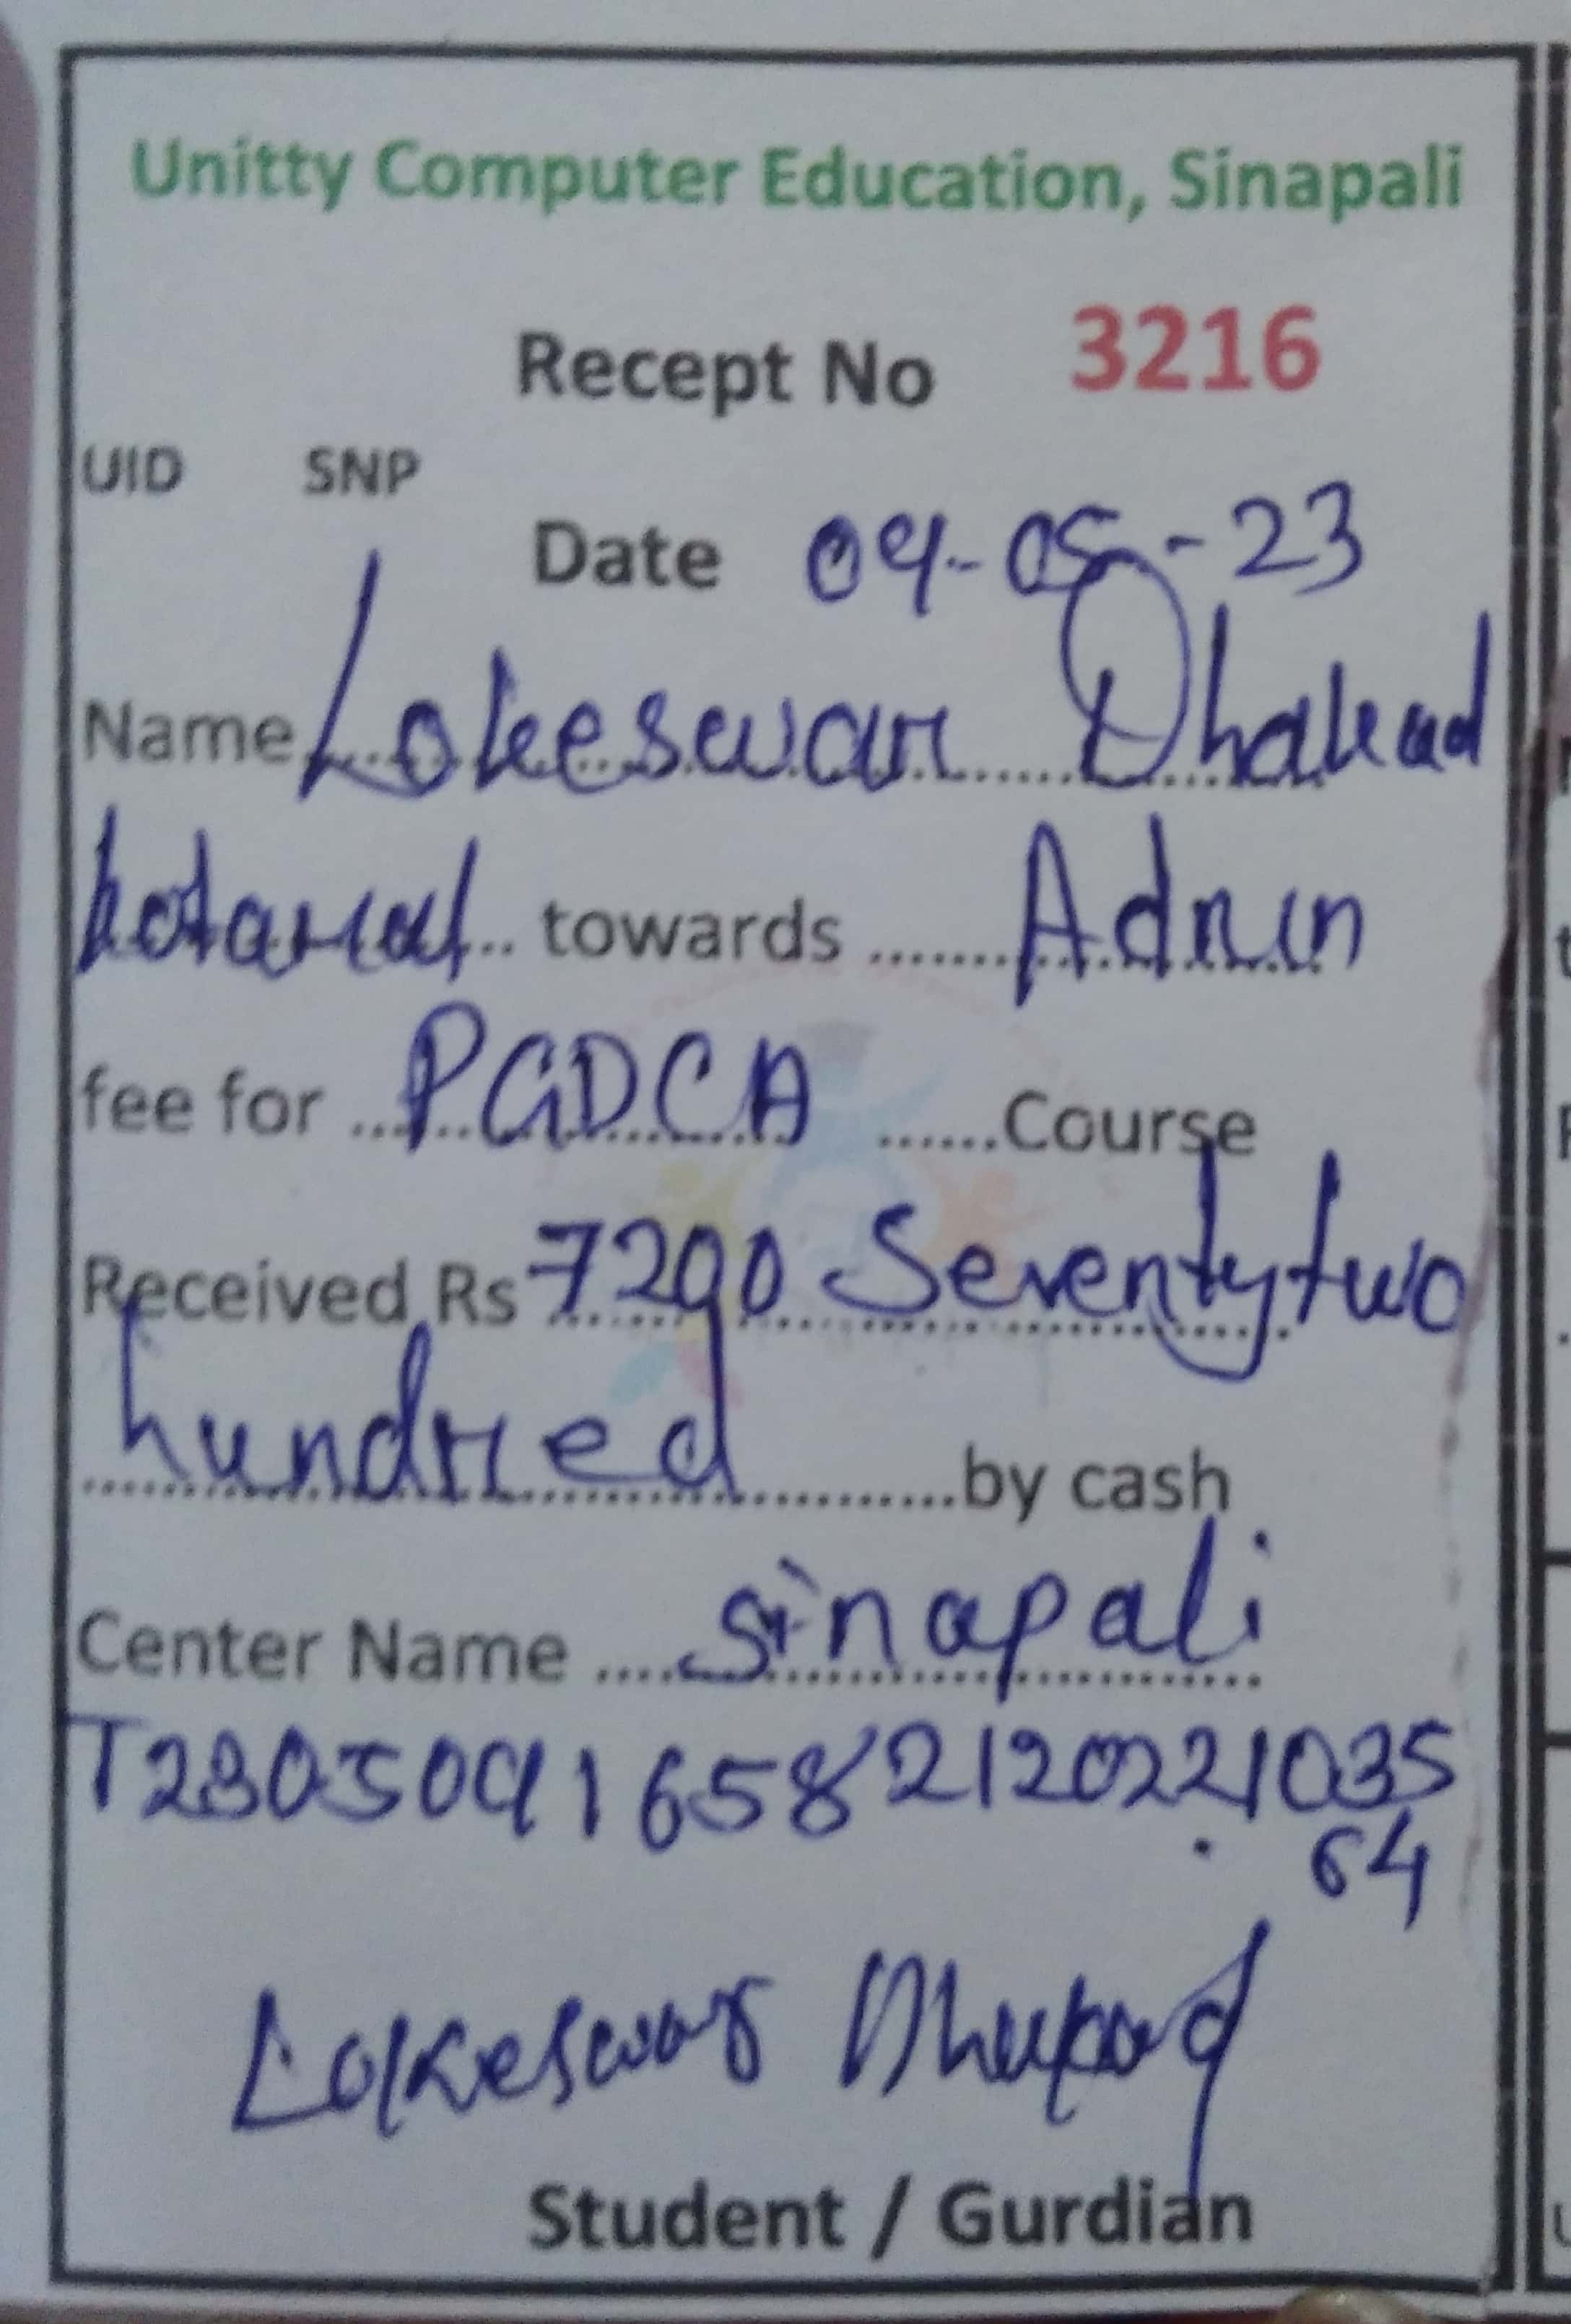 Unitty Computer Education, Sinapali
Recept No 3216
UID SNP
Date 09-05-23
Name Lokeswar Dhakad
towards ....... Admin
fee for ... PGDCA .......Course
Received Rs 7200 Seventytwo
hundred ..........by cash
Center Name .... Sinapali
T23050916582120221035
64
Lokeswar
Student / Gurdian